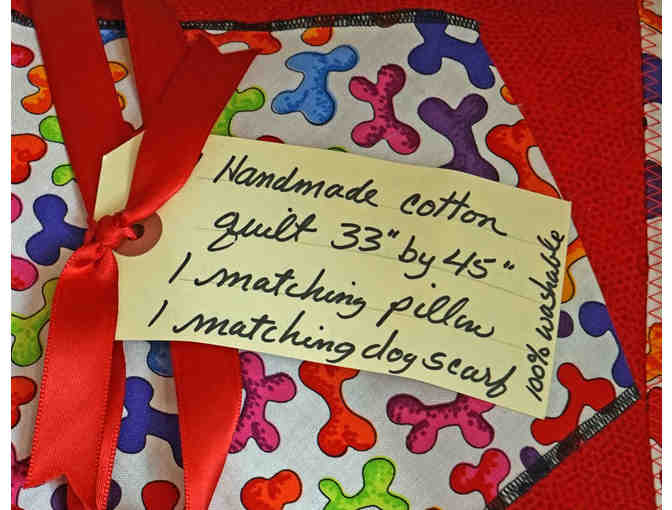 1 Handmade cotton
quilt 33" by 45"
1 matching pillow
1 matching dog scarf
100% washable